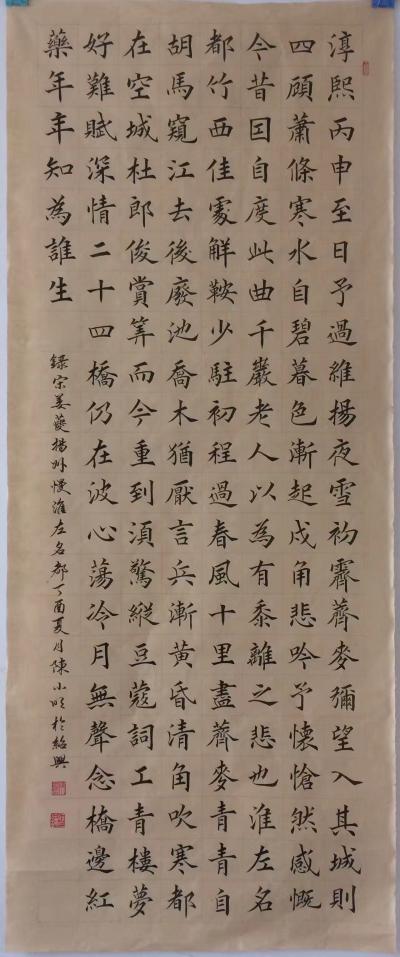 淳熙丙申至日予過維揚夜雪初霽薺麥彌望入其城則
四顧蕭條寒水自碧暮色漸起戍角悲吟予懷愴然感慨
今昔因自度此曲千巖老人以為有黍離之悲也淮左名
都竹西佳處解鞍少駐初程過春風十里盡薺麥青青自
胡馬窺江去後廢池喬木猶厭言兵漸黃昏清角吹寒都
在空城杜郎俊賞算而今重到須驚縱豆蔻詞工青樓夢
好難賦深情二十四橋仍在波心蕩冷月無聲念橋邊紅
藥年年知為誰生
錄宋姜夔揚州慢淮左名都丁酉夏月陳小 於紹興